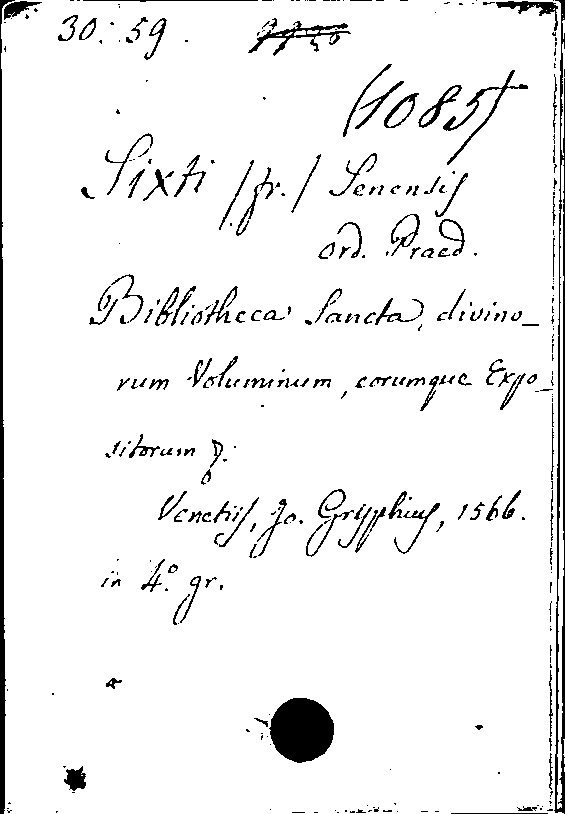 30: 59.
(1085)
Sixti /fr./ Senensis
ord. Praed.
Bibliotheca Sancta, divino_
rum Voluminum, eorumque Expo_
sitorum
Venetiis, Jo. Gryphius, 1566.
in 4.º gr.